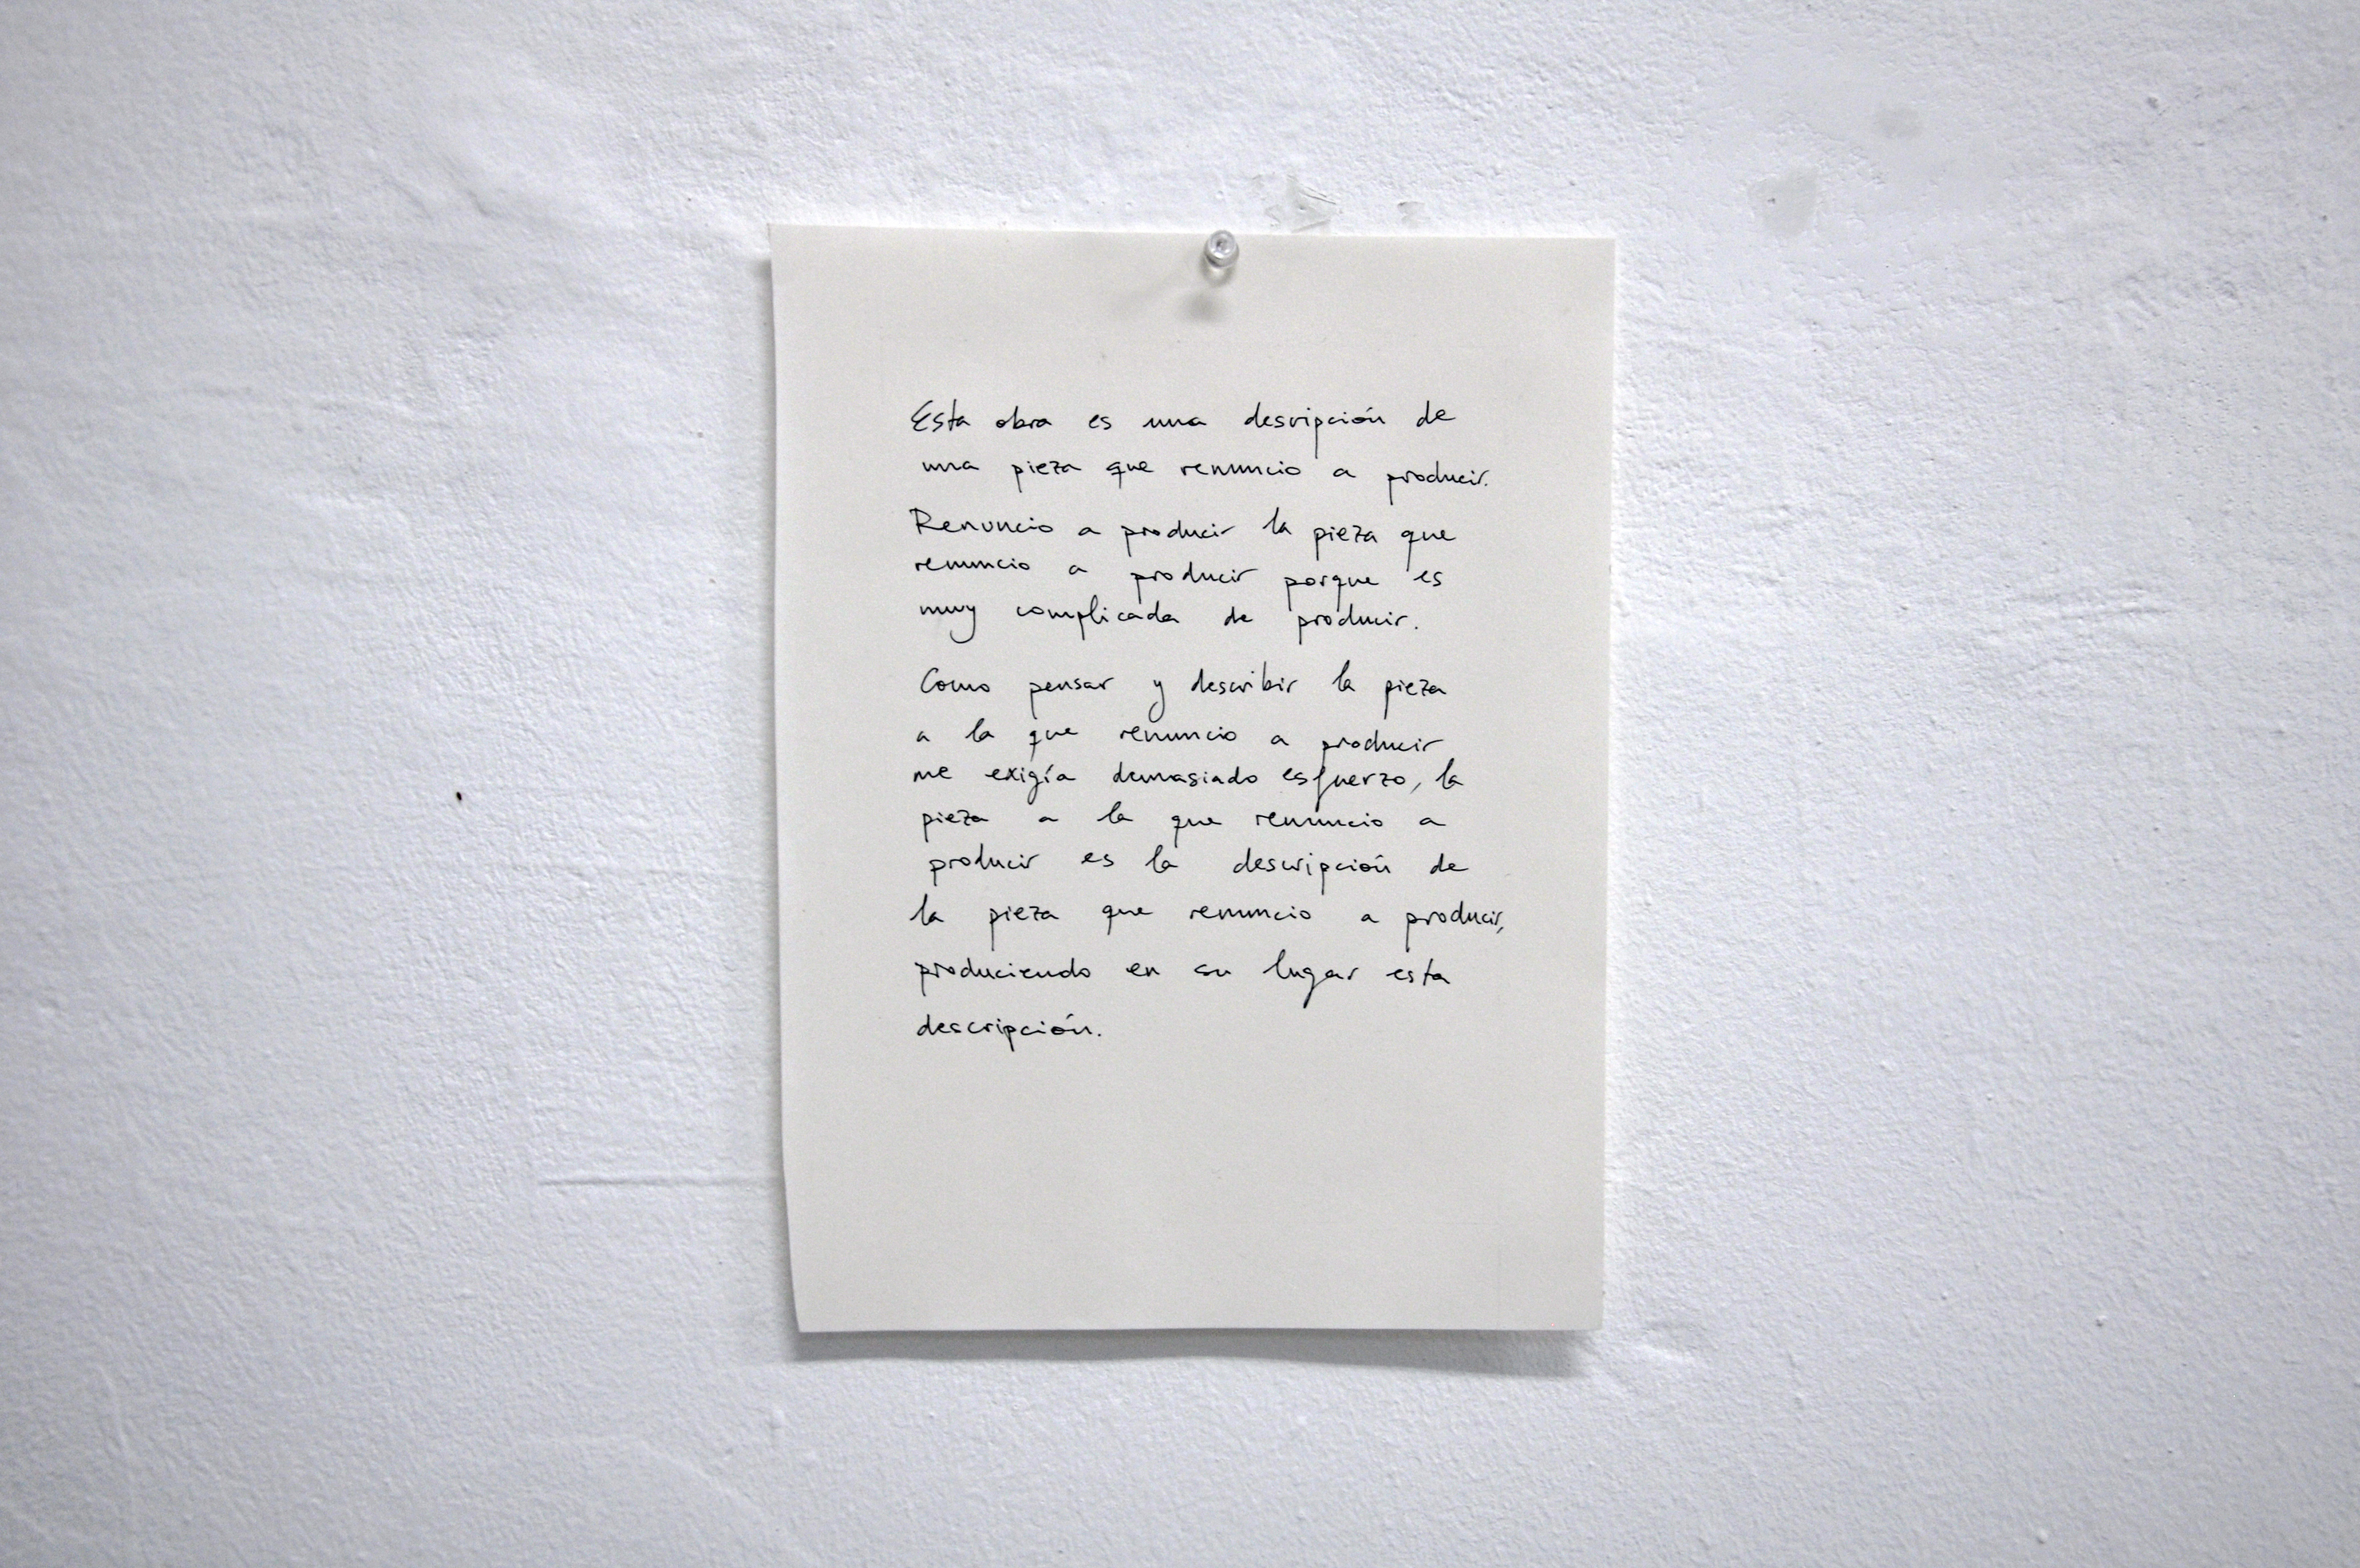 Esta obra es una descripción de
una pieza que renuncio a producir.
Renuncio a producir la pieza que
renuncio a producir porque es
muy complicada de producir.
Como pensar y describir la pieza
a la que renuncio a producir
me exigía demasiado esfuerzo, la
pieza a la que renuncio a
producir es la descripción de
la pieza que renuncio a producir,
produciendo en su lugar esta
descripción.